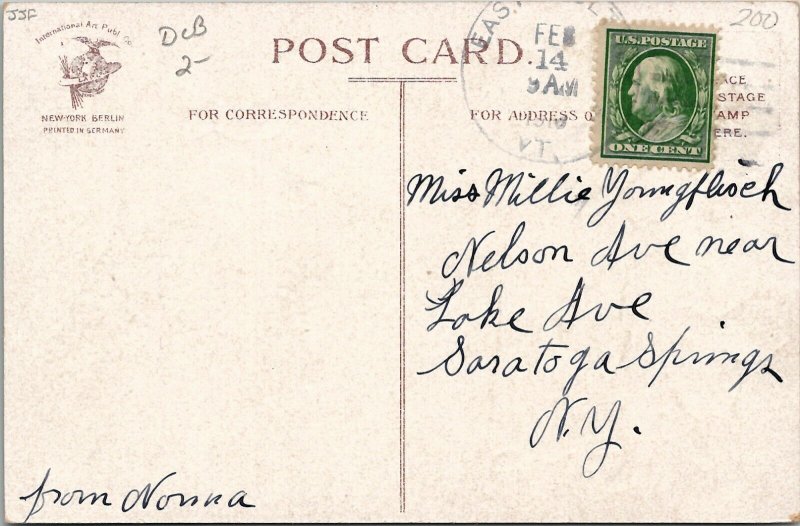 JJF
International Art Publ. Co.
NEW-YORK BERLIN
PRINTED IN GERMANY
DCB
2-
200
POST CARD
FOR CORRESPONDENCE
FOR ADDRESS
ACE
STAGE
AMP
ERE.
FEB
14
9 AM
VT.
U.S. POSTAGE
ONE CENT
Miss Millie Youngflisch
Nelson Ave near
Lake Ave
Saratoga Springs
N.Y.
from Nonna